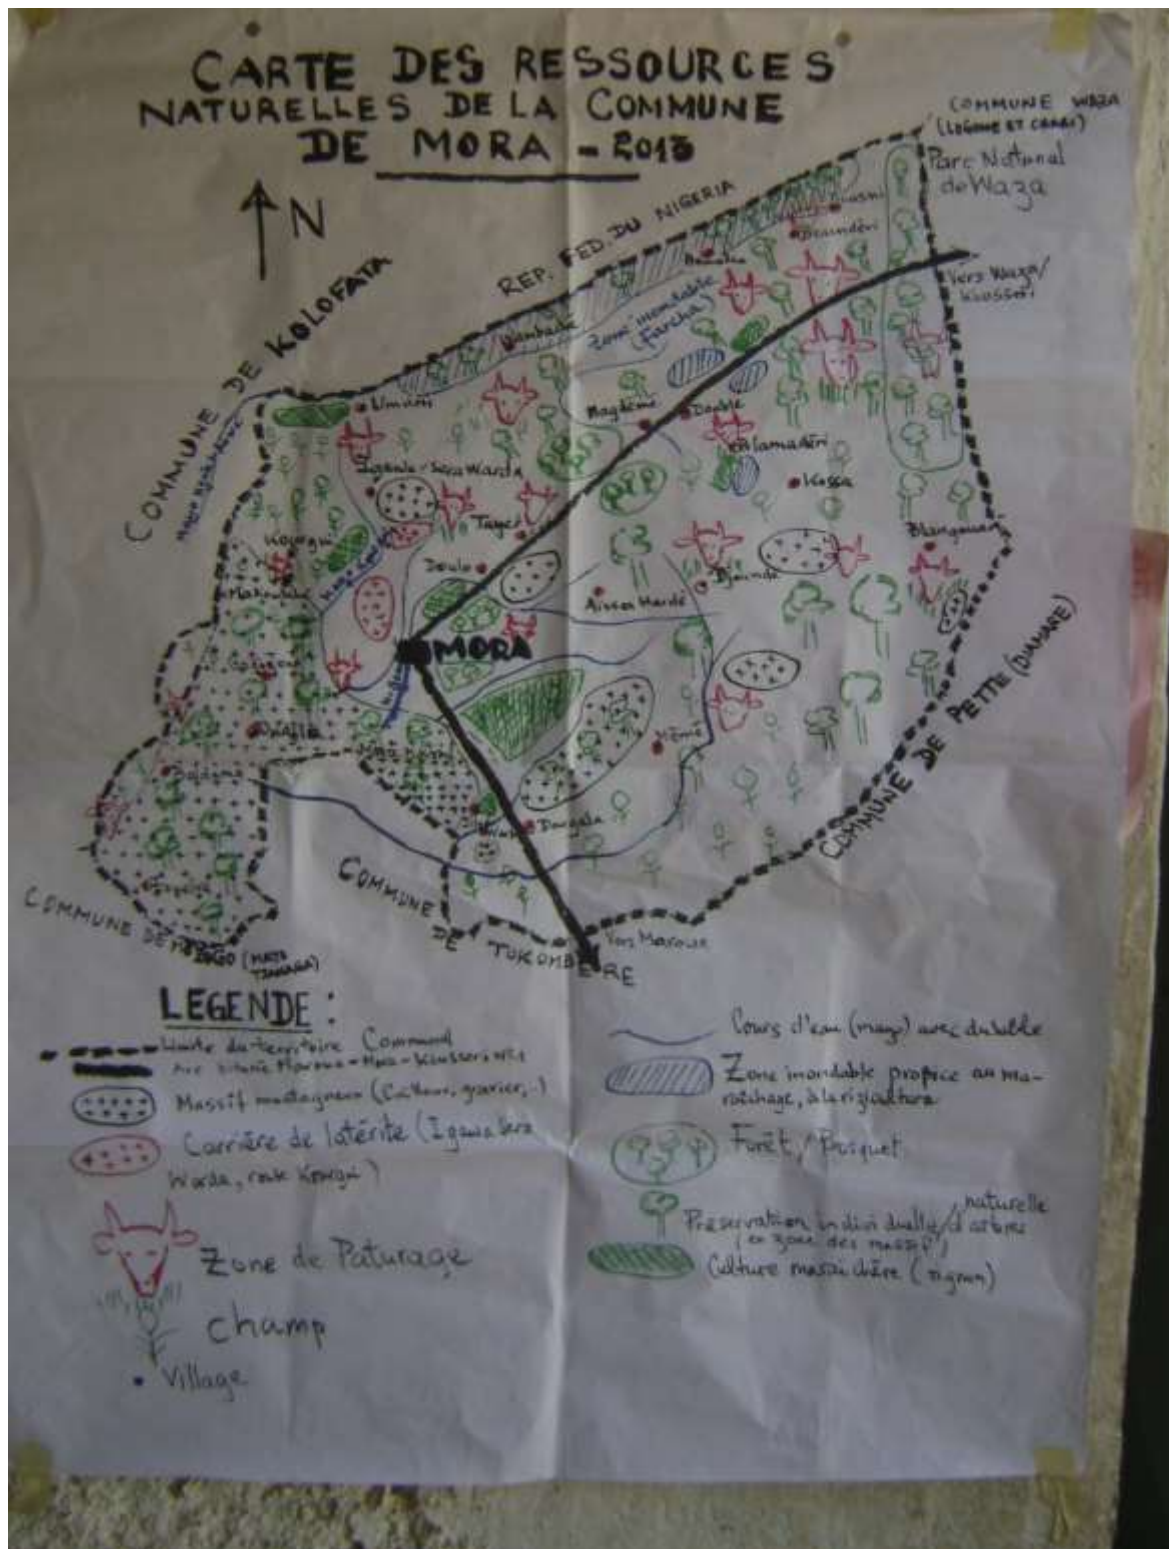 CARTE DES RESSOURCES
NATURELLES DE LA COMMUNE
DE MORA - 2013
COMMUNE WAZA
(LOGONE ET CHARI)
Parc National
de Waza
N
REP. FED. DU NIGERIA
COMMUNE DE KOLOFATA
Vers Waza/
Kousseri
Zone inondable
(Farcha)
Limani
Magdeme
Double
Alamadéri
Kossa
Igawa-Sera Warda
Tayer
Blangoua
Kourgui
Doulo
Aissa Hardé
Djounde
MORA
Mémé
COMMUNE DE PETTE (DIAMARE)
Dougala
COMMUNE
DE TOKOMBERE
Vers Maroua
COMMUNE DE
(MAYO
TSANAGA)
LEGENDE :
Limite du territoire Communal
Axe bitumé Maroua-Mora-Kousseri N°1
Massif montagneux (Cailloux, gravier,..)
Carrière de latérite (Igawa Sera
Warda, route Kourgui)
Zone de Paturage
champ
Village
Cours d'eau (mayo) avec du sable
Zone inondable propice au ma-
raîchage, à la riziculture
Forêt / Bosquet
naturelle
Préservation individuelle / d'arbres
(en zone des massifs)
Culture maraichère (oignon)